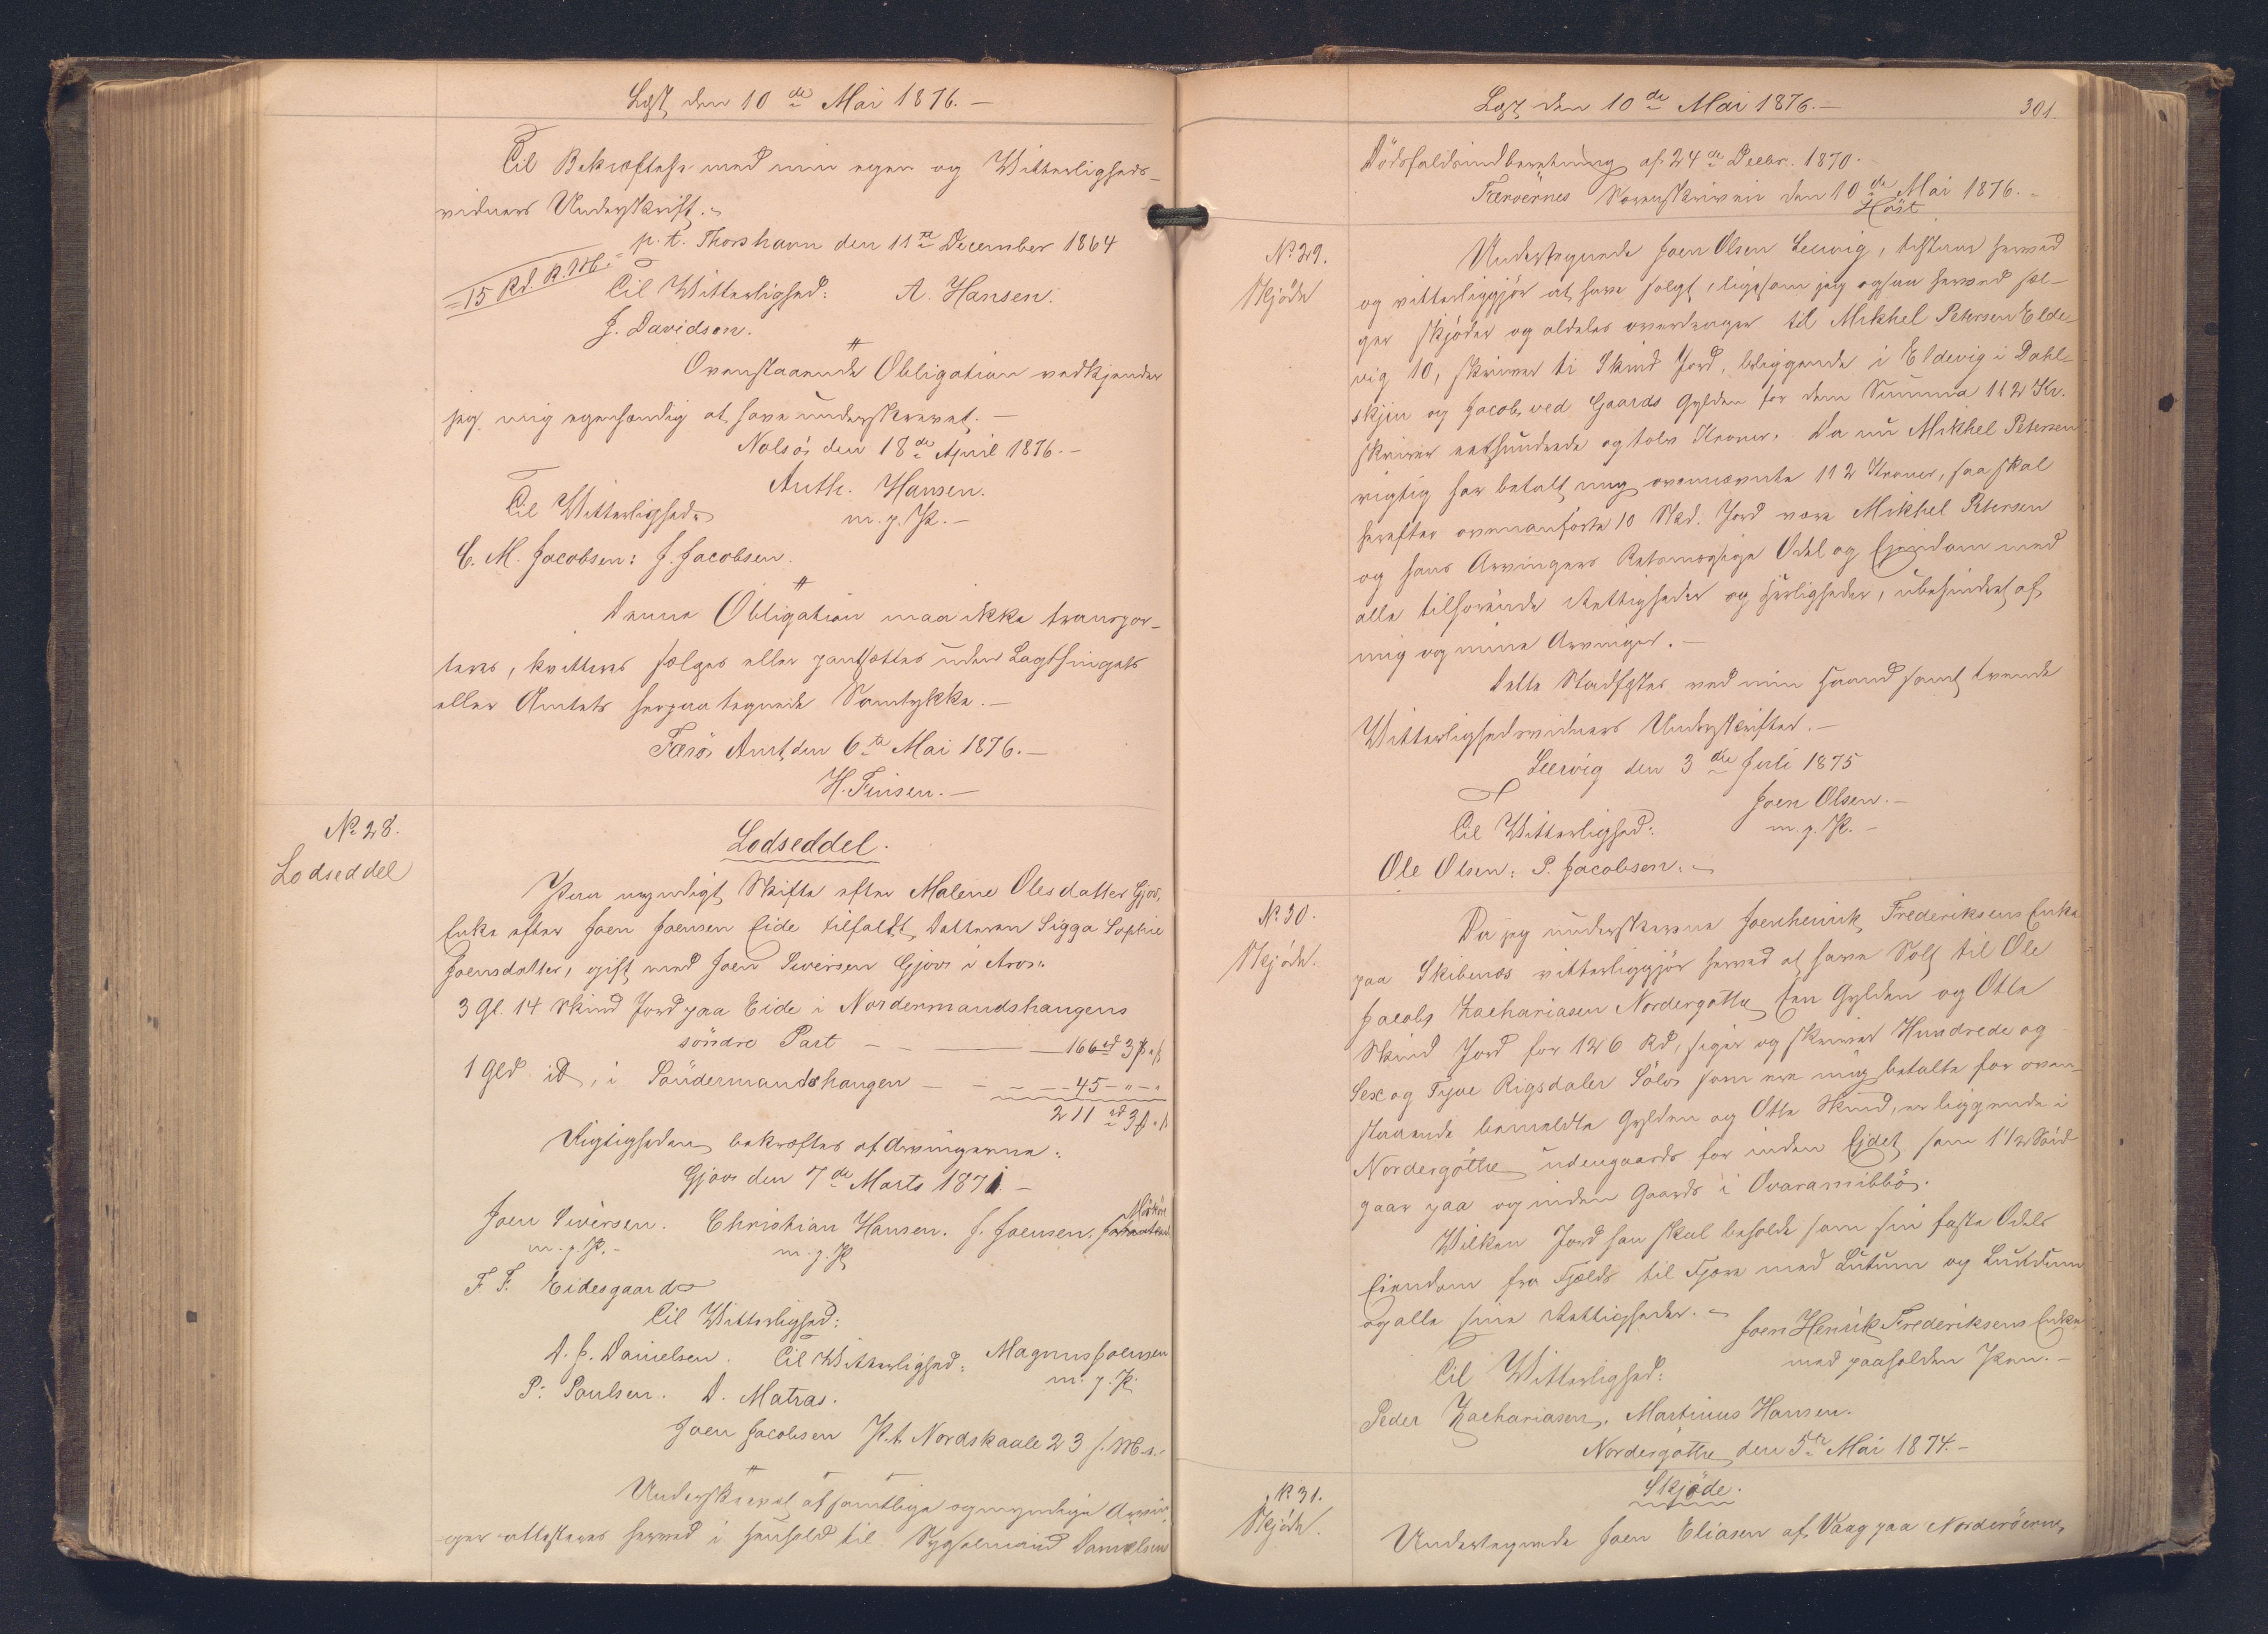 Læst den 10de Mai 1876.—
Til Bekræftelse med min egen og Vitterligheds-
vidners Underskrift.
p. t. Thorshavn den 11te December 1864
=15 Rd. R.M.=
Til Vitterlighed: A. Hansen.
J. Davidsen.
Ovenstaaende Obligation vedkjender
jeg mig egenhændig at have underskrevet.—
Nolsö den 18de April 1876.-
Anth. Hansen.
Til Vitterlighed
m. p. P.-
C. M. Jacobsen: J. Jacobsen.
Denne Obligation maa ikke transpor-
teres, kvitteres sælges eller pantsættes uden Lagthingets
eller Amtets herpaa tegnede Samtykke.—
Færö Amt, den 6te Mai 1876.—
H. Finsen.—
No 28.
Lodseddel
Lodseddel.
Paa myndigt Skifte efter Malene Olesdatter Gjov,
Enke efter Joen Joensen Eide tilfaldt Datteren Sigga Sophie
Joensdatter, gift med Joen Siversen Gjov i Arv:
3 Gl. 14 Skind Jord paa Eide i Nordermandshangens
söndre Part — 166 rd 3 ß
1 Gld. id, i Söndermandshangen — 45 - " - "
211 rd 3 ß
Rigtigheden bekræftes af Arvingerne:
Gjov den 7de Marts 1871.-
Joen Siversen. Christian Hansen. J. Joensen,
m. p. P.- m. p. P.
F. F. Eidesgaard
Til Vitterlighed:
D. J. Danielsen. Til Vitterlighed: Magnus Joensen
P: Poulsen. D. Matras. m. p. P.
Joen Jacobsen P.t. Nordskaale 23 s. M.
Underskrevet af samtlige og myndige Arvin-
ger attesteres herved i Henhold til Sysselmand Danielsen
Læst den 10de Mai 1876.— 301.
Dödsfaldsindberetning af 24de Decbr. 1870.
Færoernes Sorenskriveri den 10de Mai 1876.
Höst
No 29.
Skjöde
Undertegnede Joen Olsen Leervig, tilstaar herved
og vitterliggjör at have solgt, ligesom jeg ogsaa herved sæl-
ger skjöder og aldeles overdrager til Mikkel Petersen Elde-
vig 10, skriver ti Skind Jord, beliggende i Eldevig i Dahl-
skjin og Jacobs ved Gaards Gylden for dem Summa 112 Kr.
skriver ethundrede og tolv Kroner. Da nu Mikkel Petersen
rigtig har betalt mig ovennævnte 112 Kroner, saa skal
herefter ovenanförte 10 Skd. Jord være Mikkel Petersen
og hans Arvingers Retmæssige Odel og Ejendom med
alle tilhörende Rettigheder og Herligheder, ubehindret af
mig og mine Arvinger.—
Dette Stadfæstes ved min Haand samt tvende
Vitterlighedsvidners Underskrifter.—
Leervig den 3die Juli 1875
Joen Olsen.—
Til Vitterlighed: m. p. P.-
Ole Olsen: P. Jacobsen.
No 30.
Skjöde.
Da jeg underskrevne Joenhenrik Frederiksens Enke
paa Skibenæs vitterliggjör herved at have Solt til Ole
Jacob Zachariasen Nordergötte Een Gylden og Otte
Skind Jord for 126 Rd, siger og skriver Hundrede og
Sex og Tyve Rigsdaler Sölv som ere mig betalte for oven-
staaende bemeldte Gylden og Otte Skind, er liggende i
Nordergötte udengaards for inden Ejdet som 1½ Söid
gaar paa og inden Gaards i Ovaramibbö.
Vilken Jord han skal beholde som sin faste Odels
Eiendom fra Fjelds til Fjære med Lutum og Lundum
og alle sine Rettigheder.
Joen Henrik Frederiksens Enke
Til Vitterlighed: med paaholden Pen.—
Peder Zachariasen, Martinus Hansen.
Nordergötte den 5te Mai 1874.-
No 31.
Skjöde.
Skjöde.
Undertegnede Joen Eliasen af Vaag paa Norderöerne,